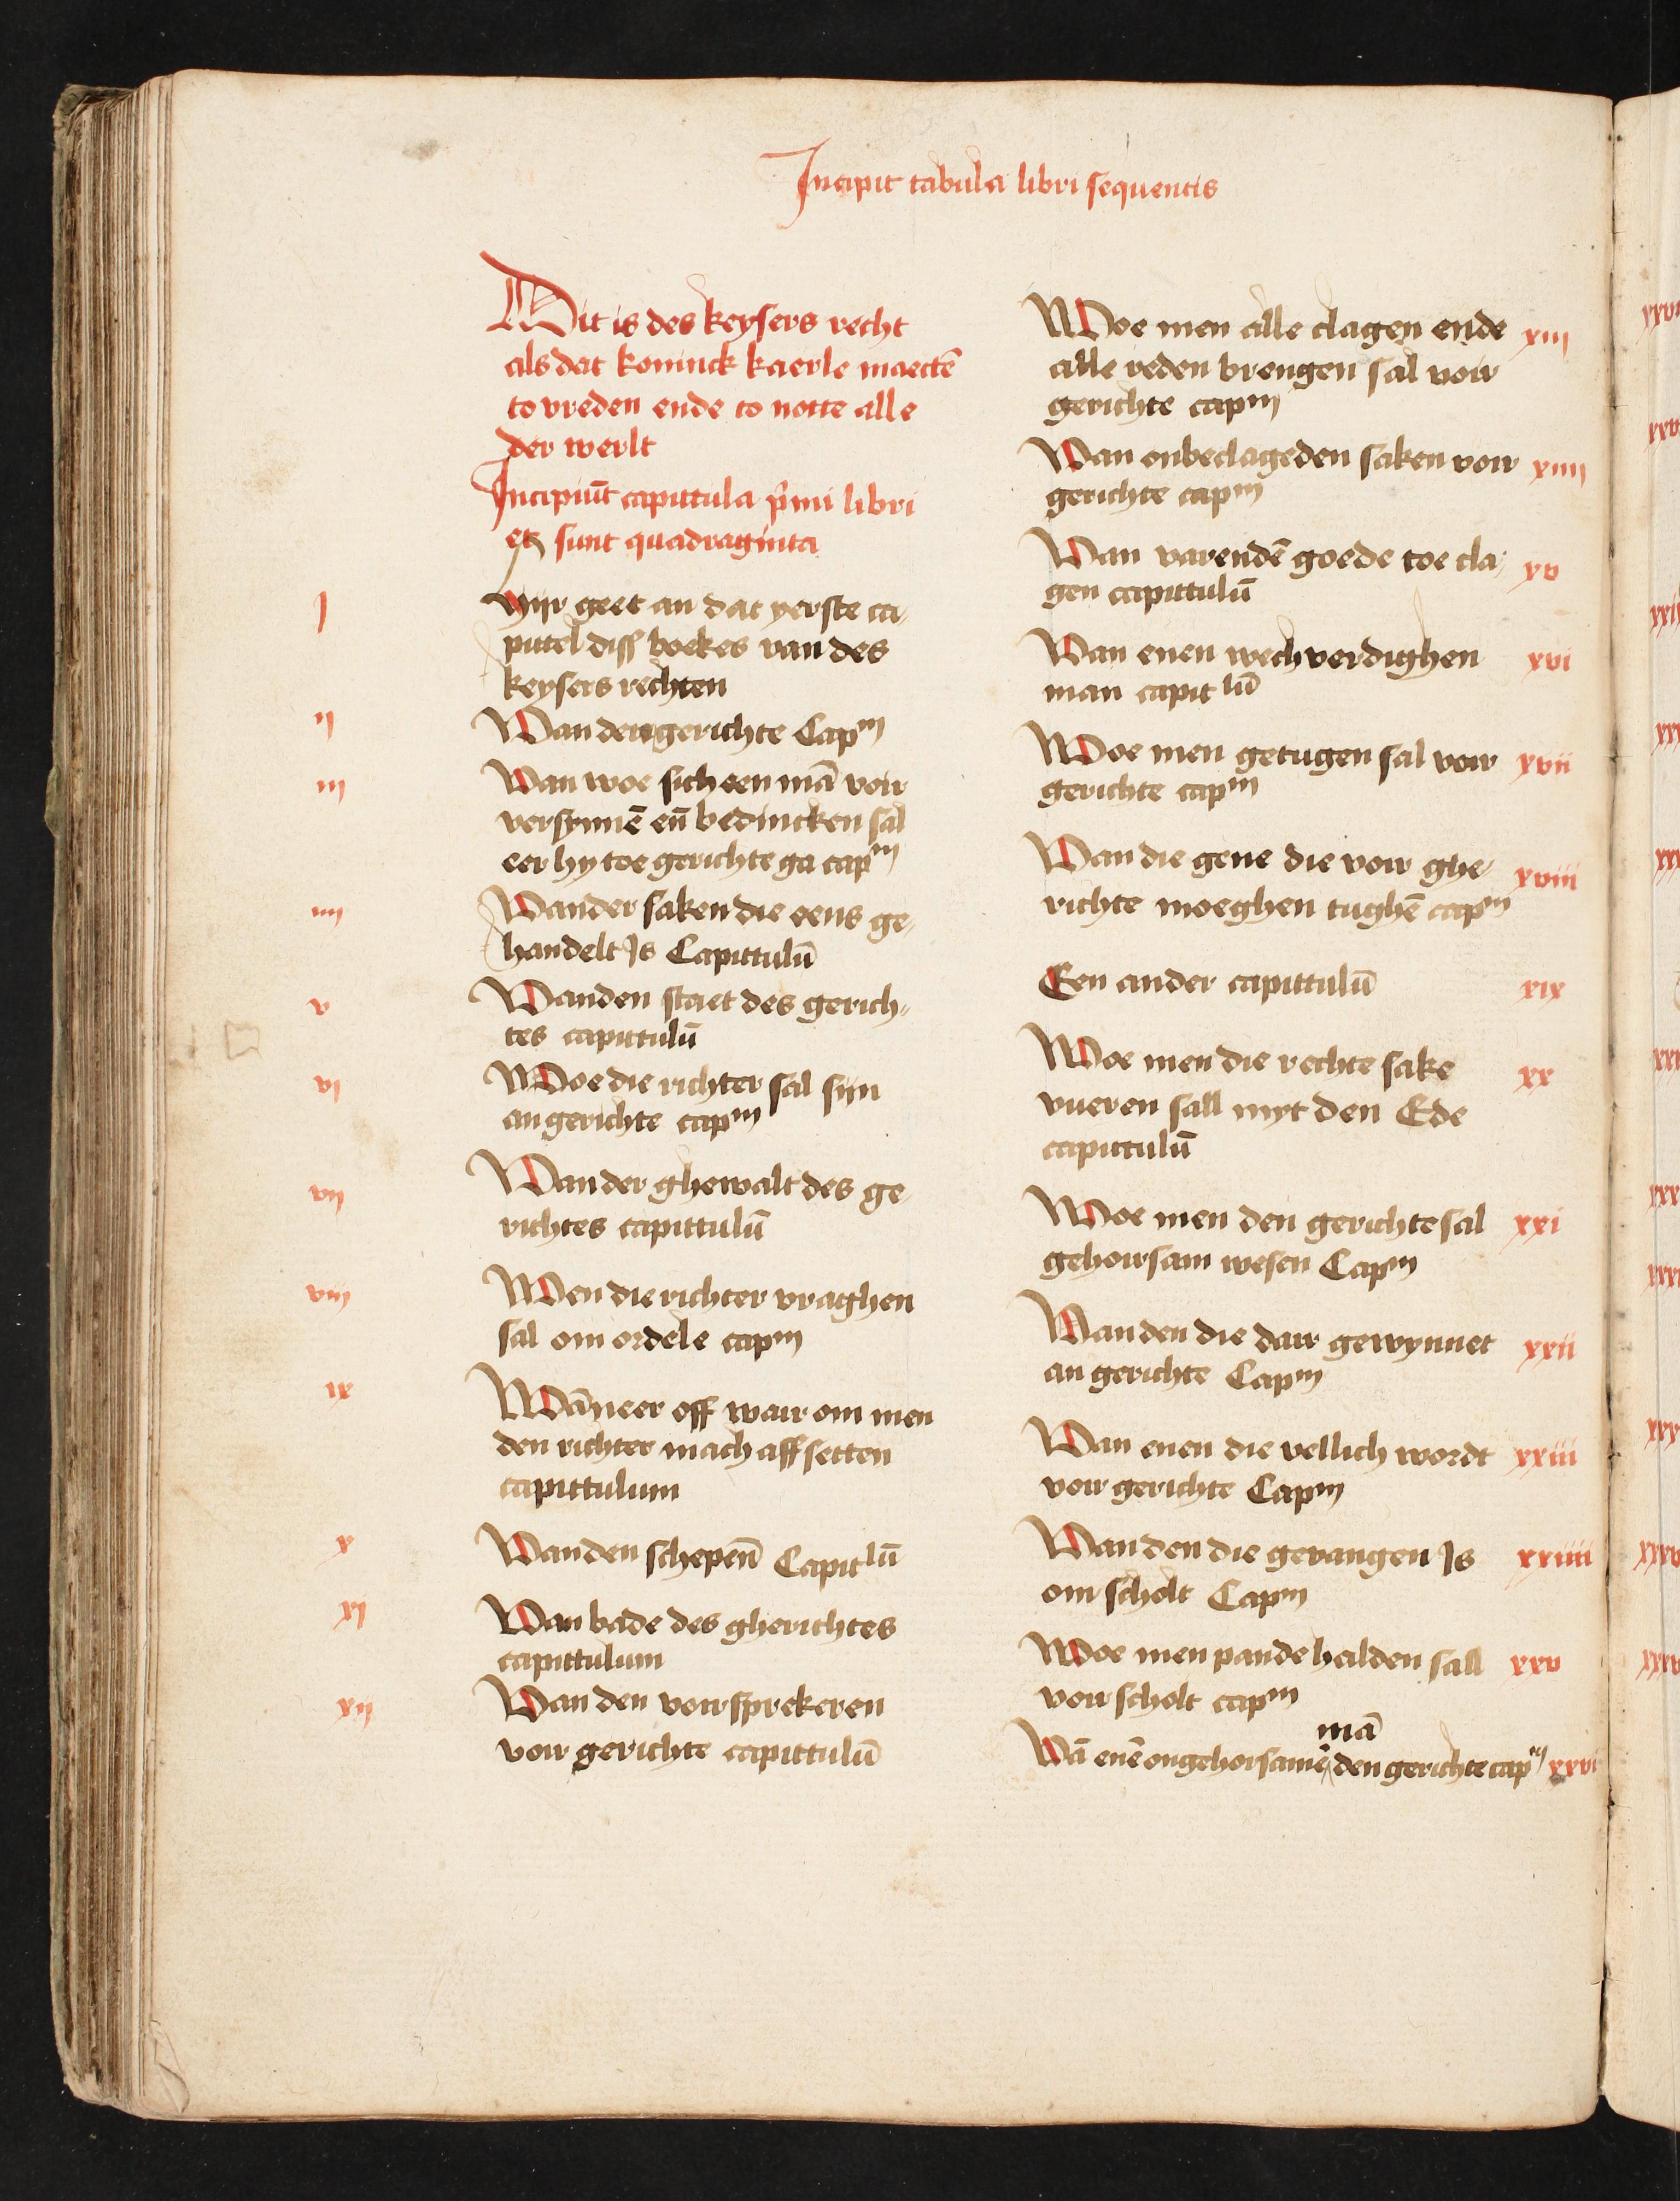 Incipit tabula libri sequentis
Dit is des keysers recht
als dat koninck kaerle maectē
to vreden ende to notte alle
der werlt
Incipiūt capittula p̄mi libri
et sunt quadraginta
I Hijr geet an dat yerste ca/
pittel diss boekes van des
keysers rechten
ij Van den gerichte Capᵐ
iij Van woe sich een mā voir
versynnē eñ bedincken sal
eer hy toe gerichte ga capᵐ
iiij Vander saken die eens ge/
handelt Is Capittulū
v Vanden staet des gerich/
tes capittulū
vi Woe die richter sal sijn
an gerichte capᵐ
vij Vander ghewalt des ge/
richtes capittulū
viij Wen die richter vraghen
sal om ordele capᵐ
ix Wāneer off wair om men
den richter mach aff setten
capittulum
x Vanden schepeñ Capitˡū
xi Van bade des gherichtes
capittulum
xij Van den voirsprekeren
voir gerichte capittulū
Woe men alle clagen ende xiij
alle reden brengen sal voir
gerichte capᵐ
Van onbeclageden saken voir xiiij
gerichte capᵐ
Van varendē goede toe cla/ xv
gen capittulū
Van enen wechverdighen xvi
man capitˡū
Woe men getugen sal voir xvii
gerichte capᵐ
Van die gene die voir ghe/ xviii
richte moeghen tughē capᵐ
Een ander capittulū xix
Woe men die rechte sake xx
vueren sall myt den Ede
capittulū
Woe men den gerichte sal xxi
gehoirsam wesen Capᵐ
Van den die dair gewynnet xxii
an gerichte Capᵐ
Van enen die vellich wordt xxiii
voir gerichte Capᵐ
Van den die gevangen Is xxiiii
om scholt Capᵐ
Woe men pande halden sall xxv
voir scholt capᵐ
mā
Vā enē ongehorsamē den gerichte capᵐ xxvi